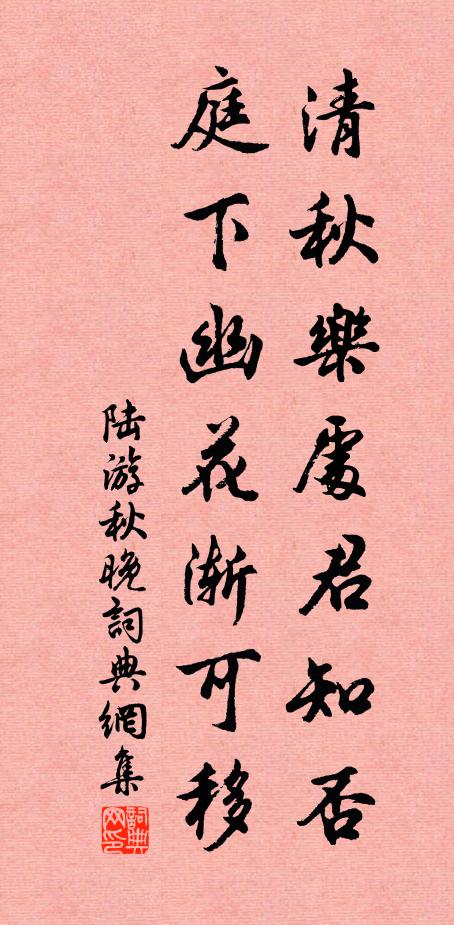 清秋樂處君知否
庭下幽花漸可移
陆游秋晚詞典網集
詞典网印